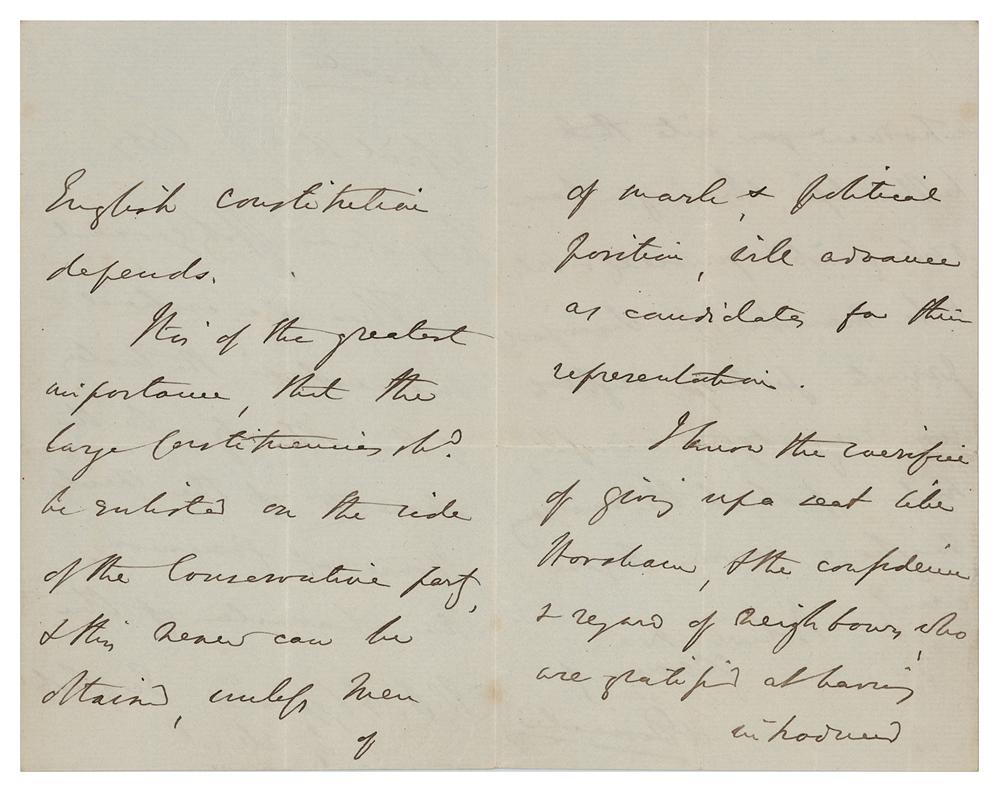 English constitution
depends.
It is of the greatest
importance, that the
large Constituencies shd.
be enlisted on the side
of the Conservative party,
& this never can be
attained, unless men
of
of mark, & political
position, will advance
as candidates for their
representation.
I know the sacrifice
of giving up a seat like
Horsham, & the confidence
& regard of neighbours, who
are gratified at having
introduced